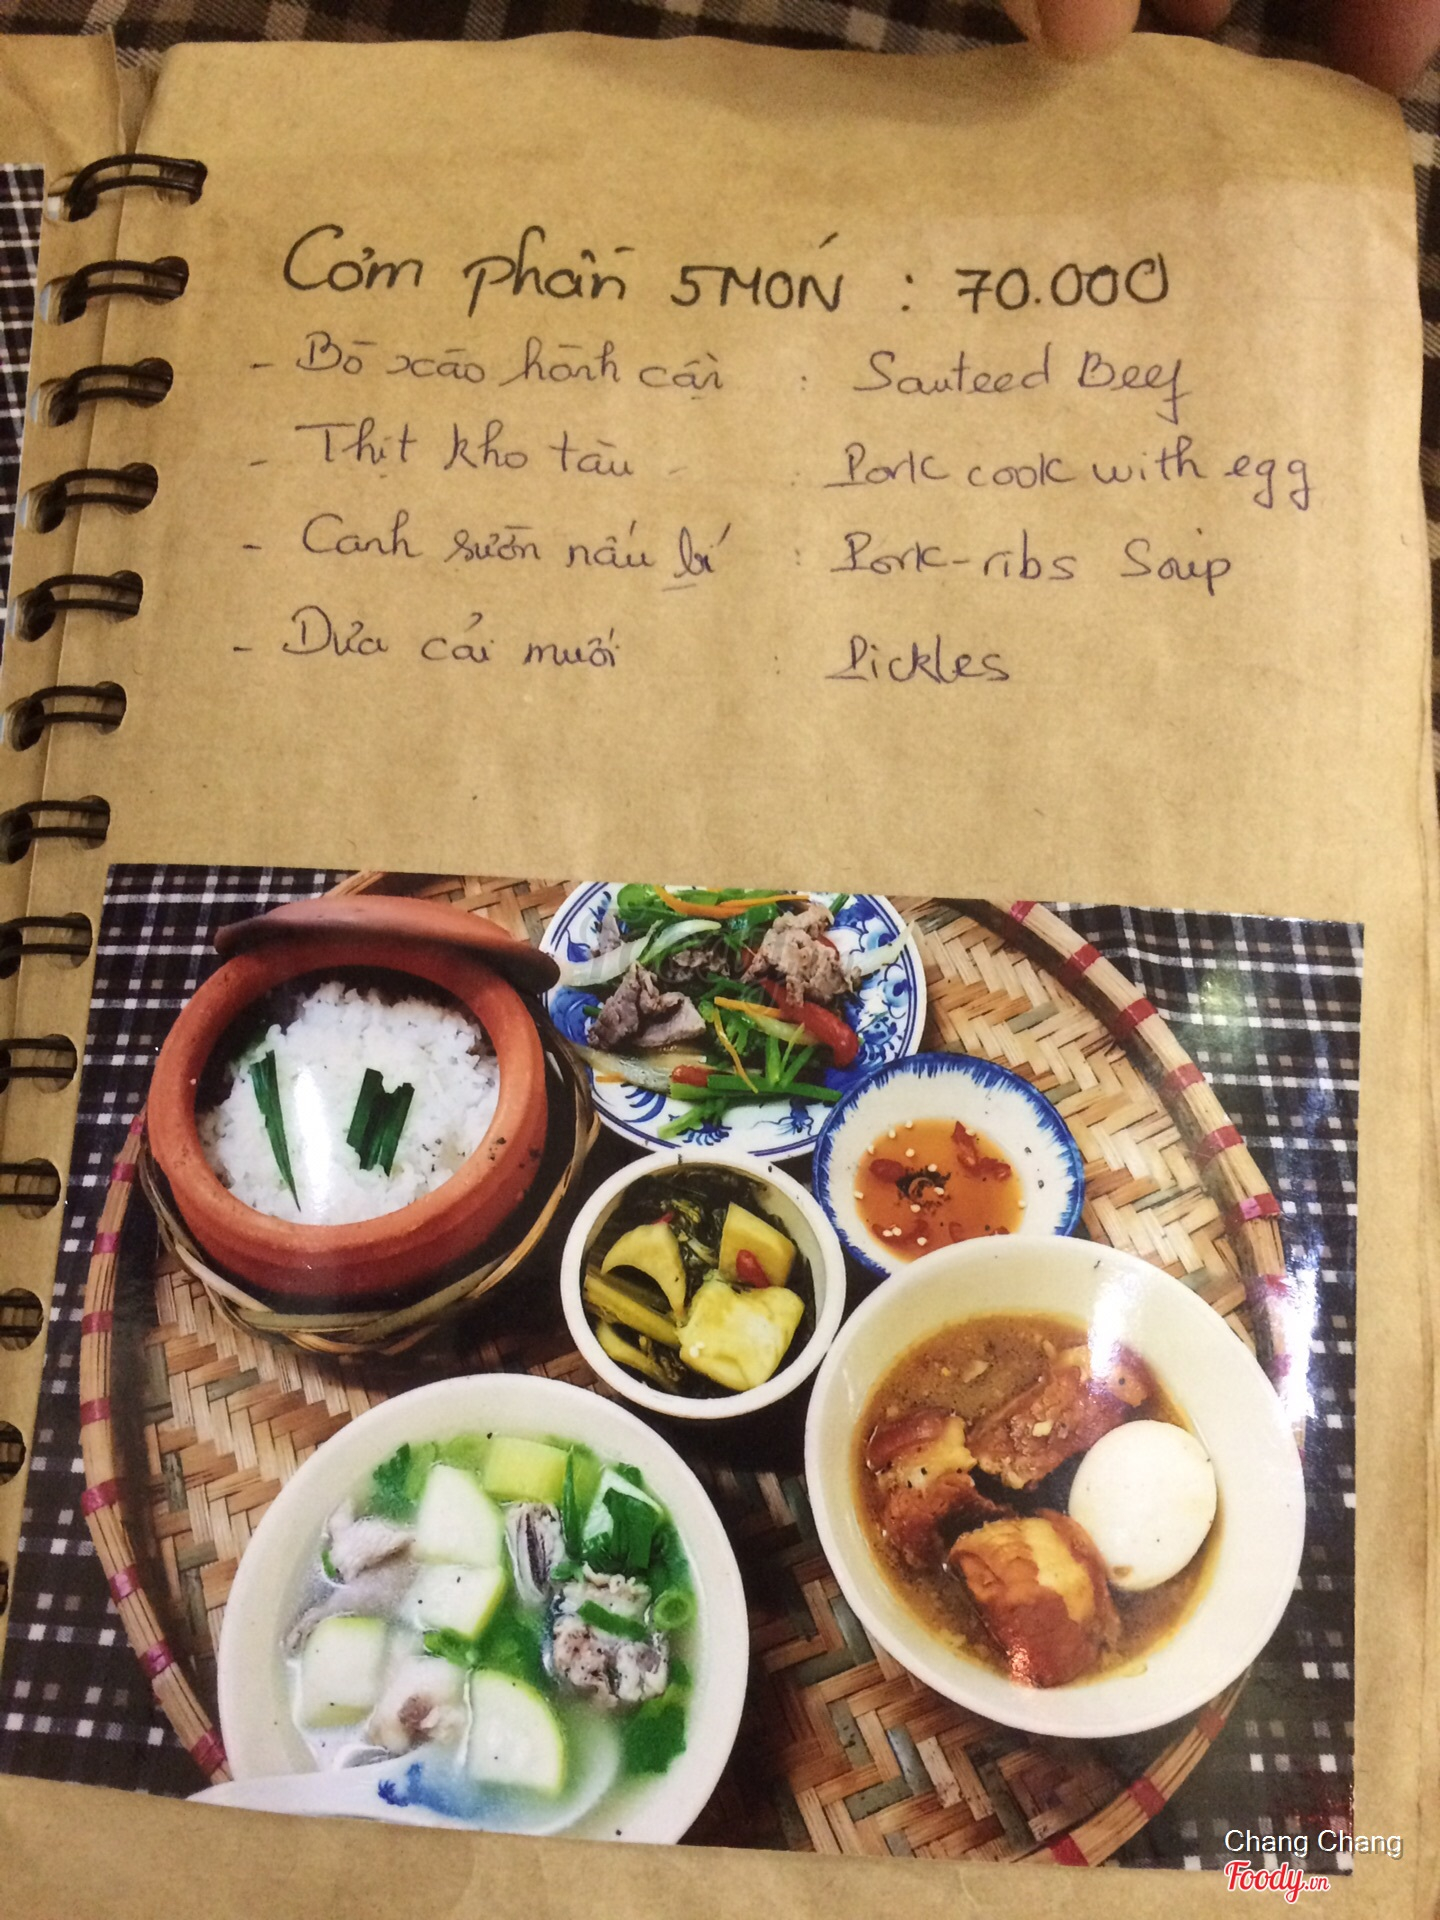 Cơm phần 5 MÓN : 70.000
- Bò xào hành cần : Sauteed Beef
- Thịt kho tàu : Pork cook with egg
- Canh sườn nấu bí : Pork-ribs Soup
- Dưa cải muối : Pickles
Chang Chang
Foody.vn